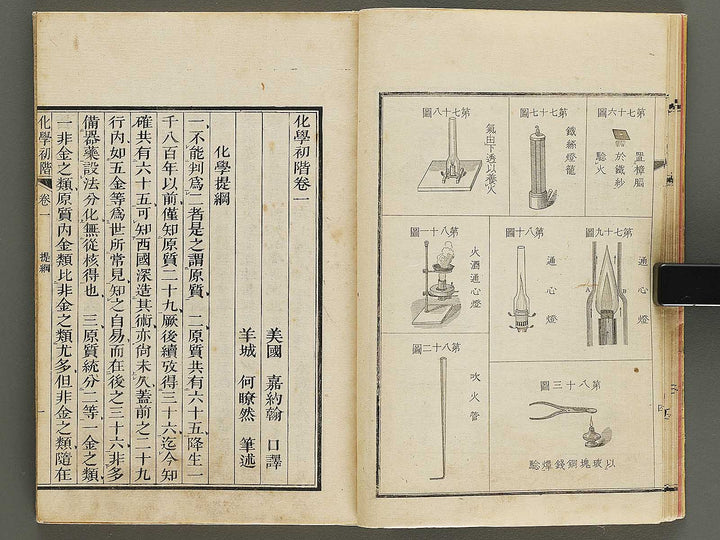 第七十六圖
置樟腦
於鐵紗
驗火
第七十七圖
鐵絲燈籠
第七十八圖
氣由下透以養火
第七十九圖
通心燈
第八十圖
通心燈
第八十一圖
火酒通心燈
第八十二圖
吹火管
第八十三圖
以玻塊銅錢煒驗
化學初階卷一
美國 嘉約翰 口譯
羊城 何瞭然 筆述
化學提綱
一不能判爲二者是之謂原質 二原質共有六十五降生一
千八百年以前僅知原質二十九厥後續攷得三十六迄今知
確共有六十五可知西國深造其術亦尙未久蓋前之二十九
行內如五金等爲世所常見知之自易而在後之三十六非多
備器藥設法分化無從核得也 三原質統分二等一金之類
一非金之類原質內金類比非金之類尤多但非金之類隨在
化學初階 卷一 提綱 一